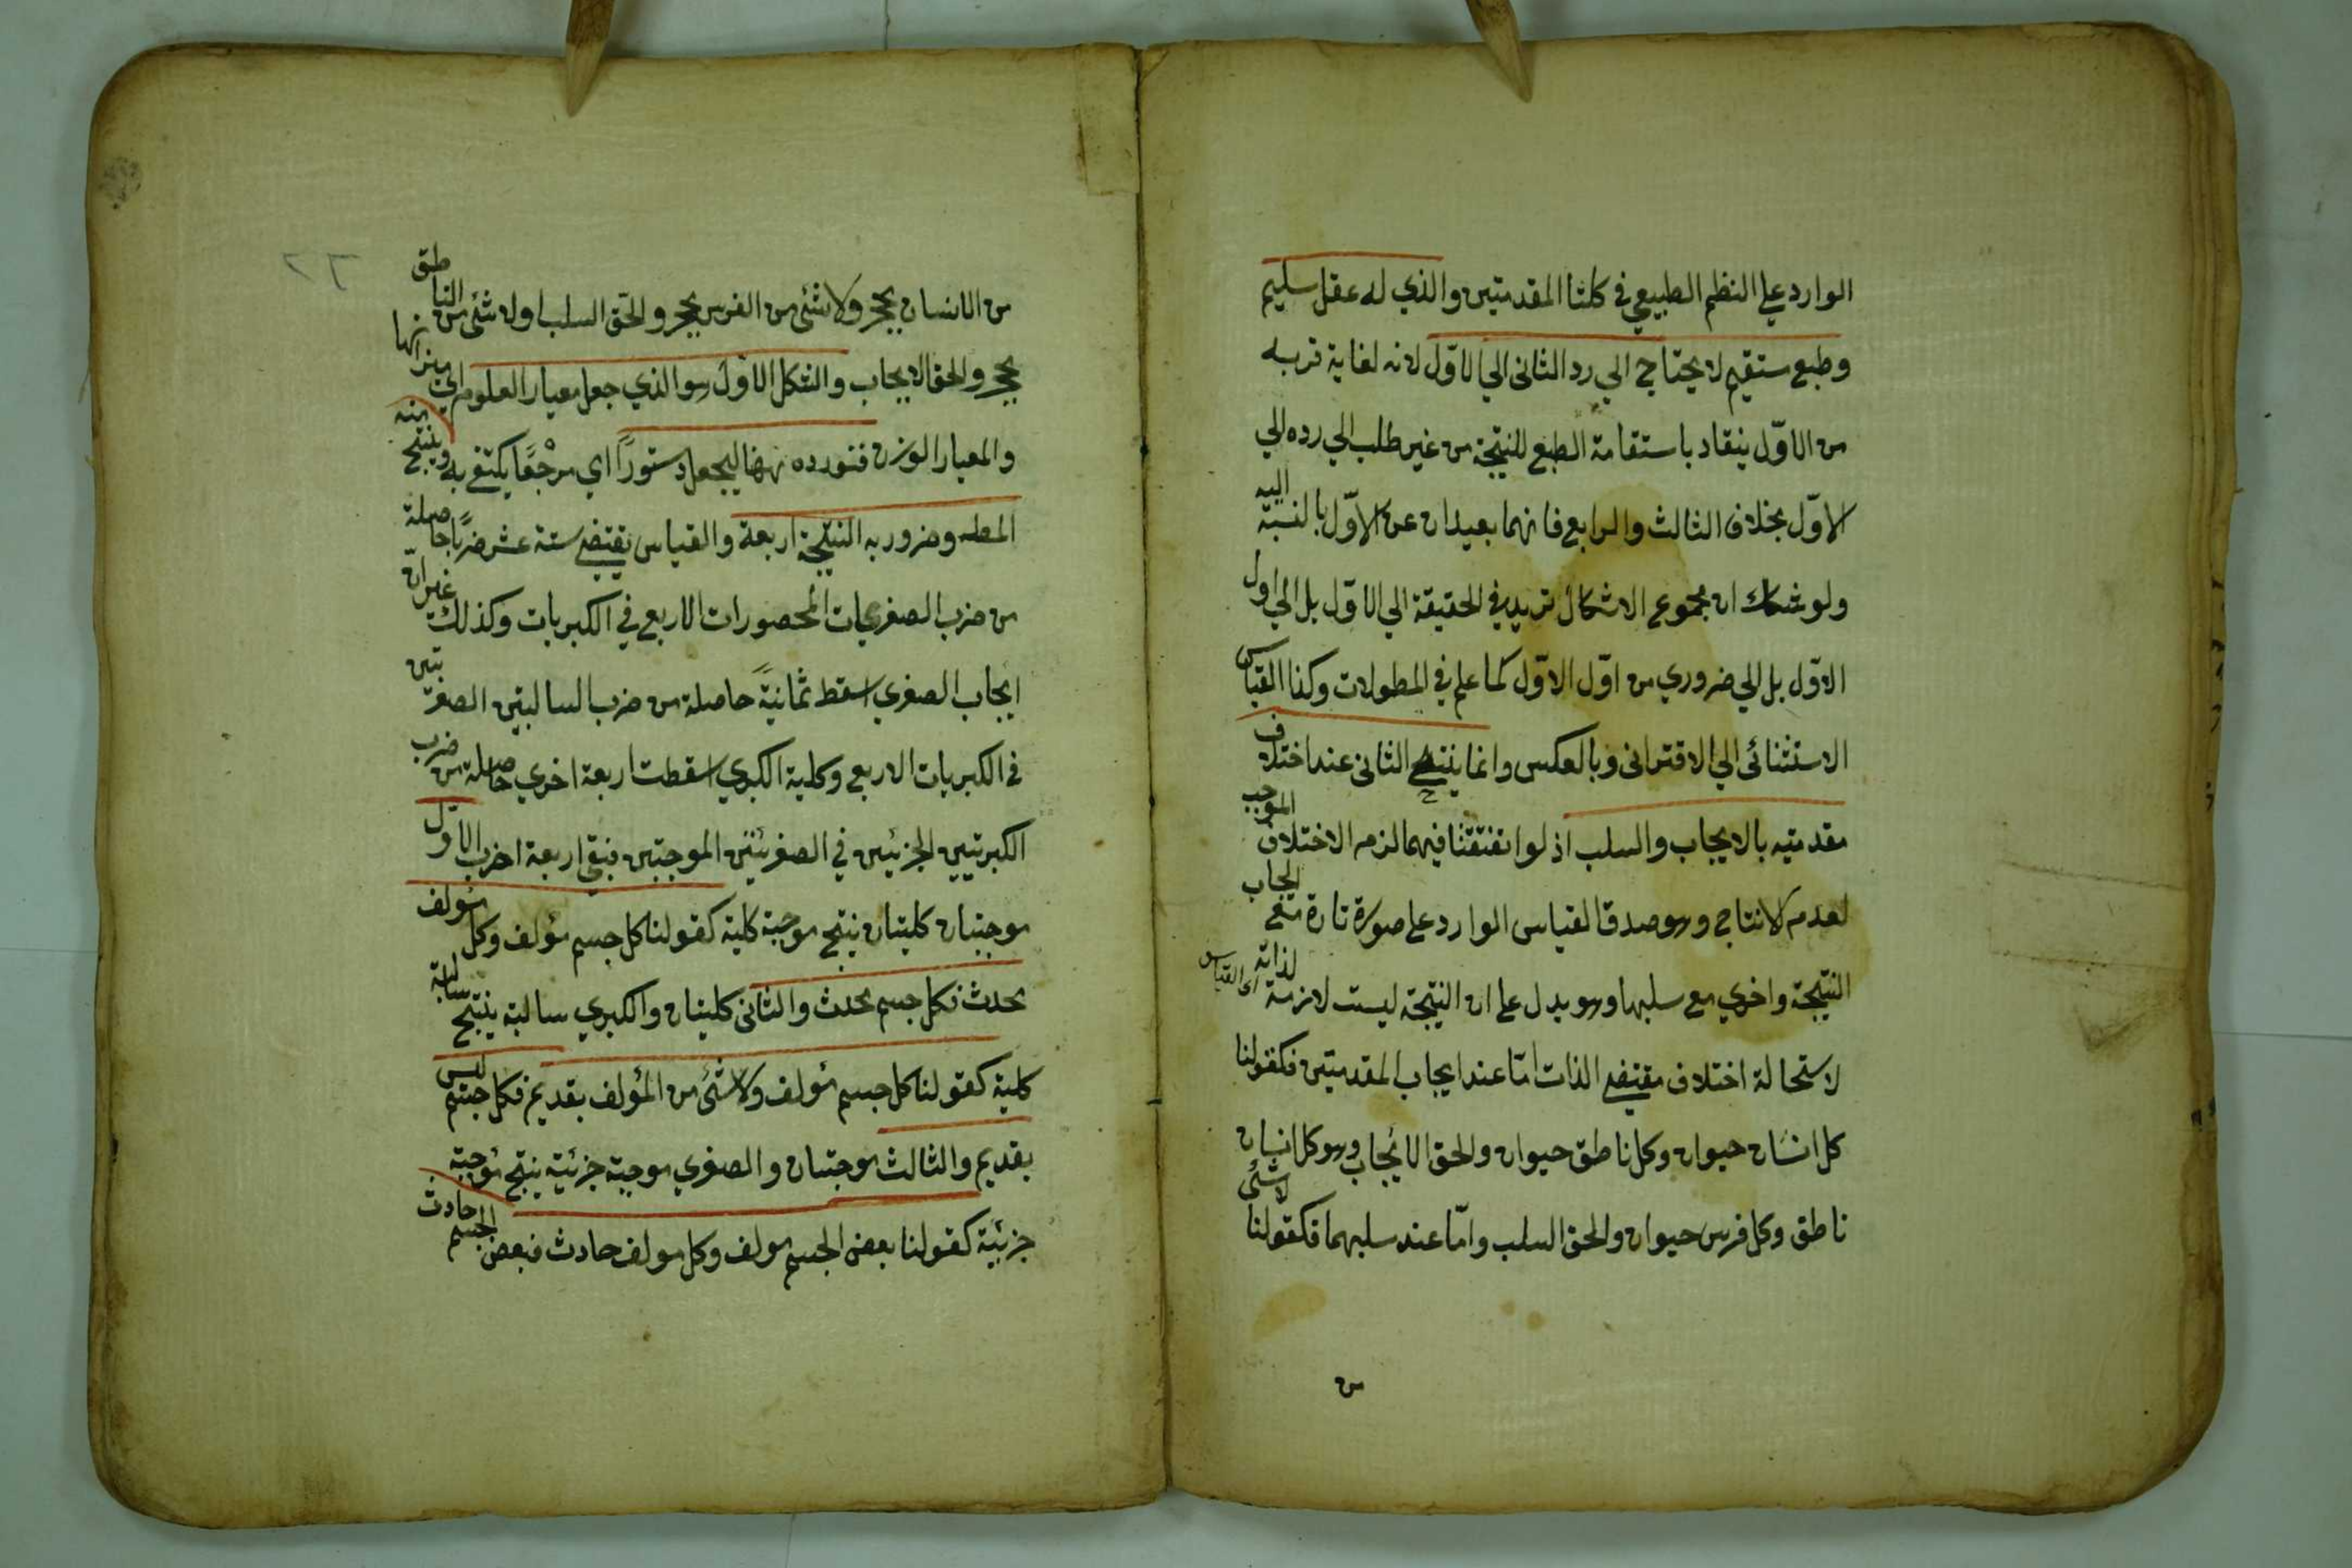 الوارد على النظم الطبيعي في كلتا المقدمتين والذي له عقل سليم
وطبع مستقيم لا يحتاج الي رد الثاني الي الاوّل لانه لغاية قربه
من الاوّل ينقاد باستقامة الطبع للنتيجة من غير طلب الي رده الي
الاوّل بخلاف الثالث والرابع فانهما بعيدان عن الاوّل بالنسبة اليه
ولو شك ان مجموع الاشكال تريد في الحقيقة الي الاوّل بل الي اول
الاوّل بل الي ضروري من اوّل الاوّل كما علم في المطولات وكذا القياس
الاستثنائي الي الاقتراني وبالعكس وانما ينتج الثاني عند اختلاف
مقدمتيه بالايجاب والسلب اذ لو اتفقتا فيهما لزم الاختلاف الموجب
لعدم الانتاج وهو صدق القياس الوارد على صورة تارة مع ايجاب
النتيجة واخري مع سلبها وهو يدل على ان النتيجة ليست لازمة لذاته اي القياس
لاستحالة اختلاف مقتضي الذات امّا عند ايجاب المقدمتين فكقولنا
كل انسان حيوان وكل ناطق حيوان والحق الايجاب وهو كل انسان
ناطق وكل فرس حيوان والحق السلب وامّا عند سلبهما فكقولنا لا شئ
من
٦٢
من الانسان بحجر ولا شئ من الفرس بحجر والحق السلب اولا شئ من الناطق
بحجر والحق الايجاب والشكل الاوّل هو الذي جعل معيار العلوم اي ميزانها
والمعيار الوزن فنورده ههنا ليجعل دستوراً اي مرْجَعًا يكتفي به وينتج منه
المطلـ وضروبه النتيجة اربعة والقياس يقتضي ستة عشر ضربًا حاصلة
من ضرب الصغريات المحصورات الاربع في الكبريات وكذلك غير ان
ايجاب الصغري اسقط ثمانيةً حاصلة من ضرب السالبتين الصغرتين
في الكبريات الاربع وكلية الكبري اسقطت اربعة اخري حاصلة من ضرب
الكبرتيين الجزئيين في الصغريتين الموجبتين فبقي اربعة اضرب الاوّل
موجبتان كليتان ينتج موجبة كلية كقولنا كل جسم مؤلف وكل مؤلف
محدث فكل جسم محدث والثاني كليتان والكبري سالبة ينتج سالبة
كلية كقولنا كل جسم مؤلف ولا شئ من المؤلف بقديم فكل جسم ليس
بقديم والثالث موجبتان والصغري موجبة جزئية ينتج موجبة
جزئية كقولنا بعض الجسم مولف وكل مولف حادث فبعض الجسم حادث